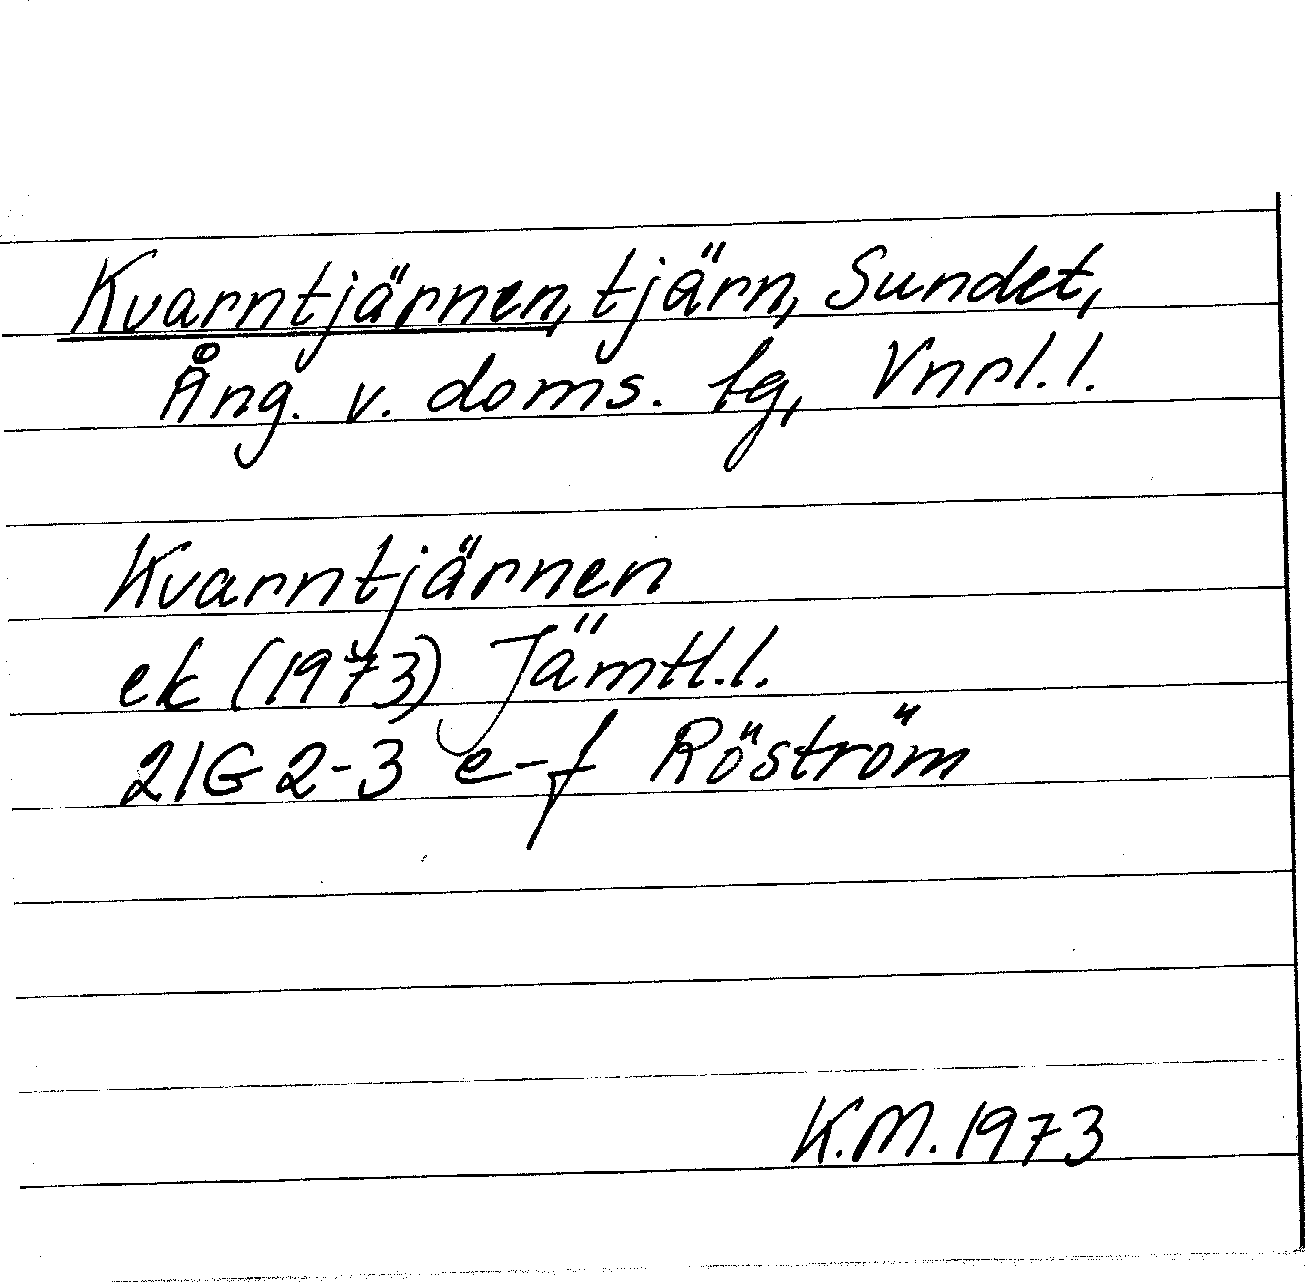 Kvarntjärnen, tjärn, Sundet,
Ång. v. doms. tg, Vnrl.l.
Kvarntjärnen
ek (1973) Jämtl.l.
21G 2-3 e-f Röström
K.M. 1973